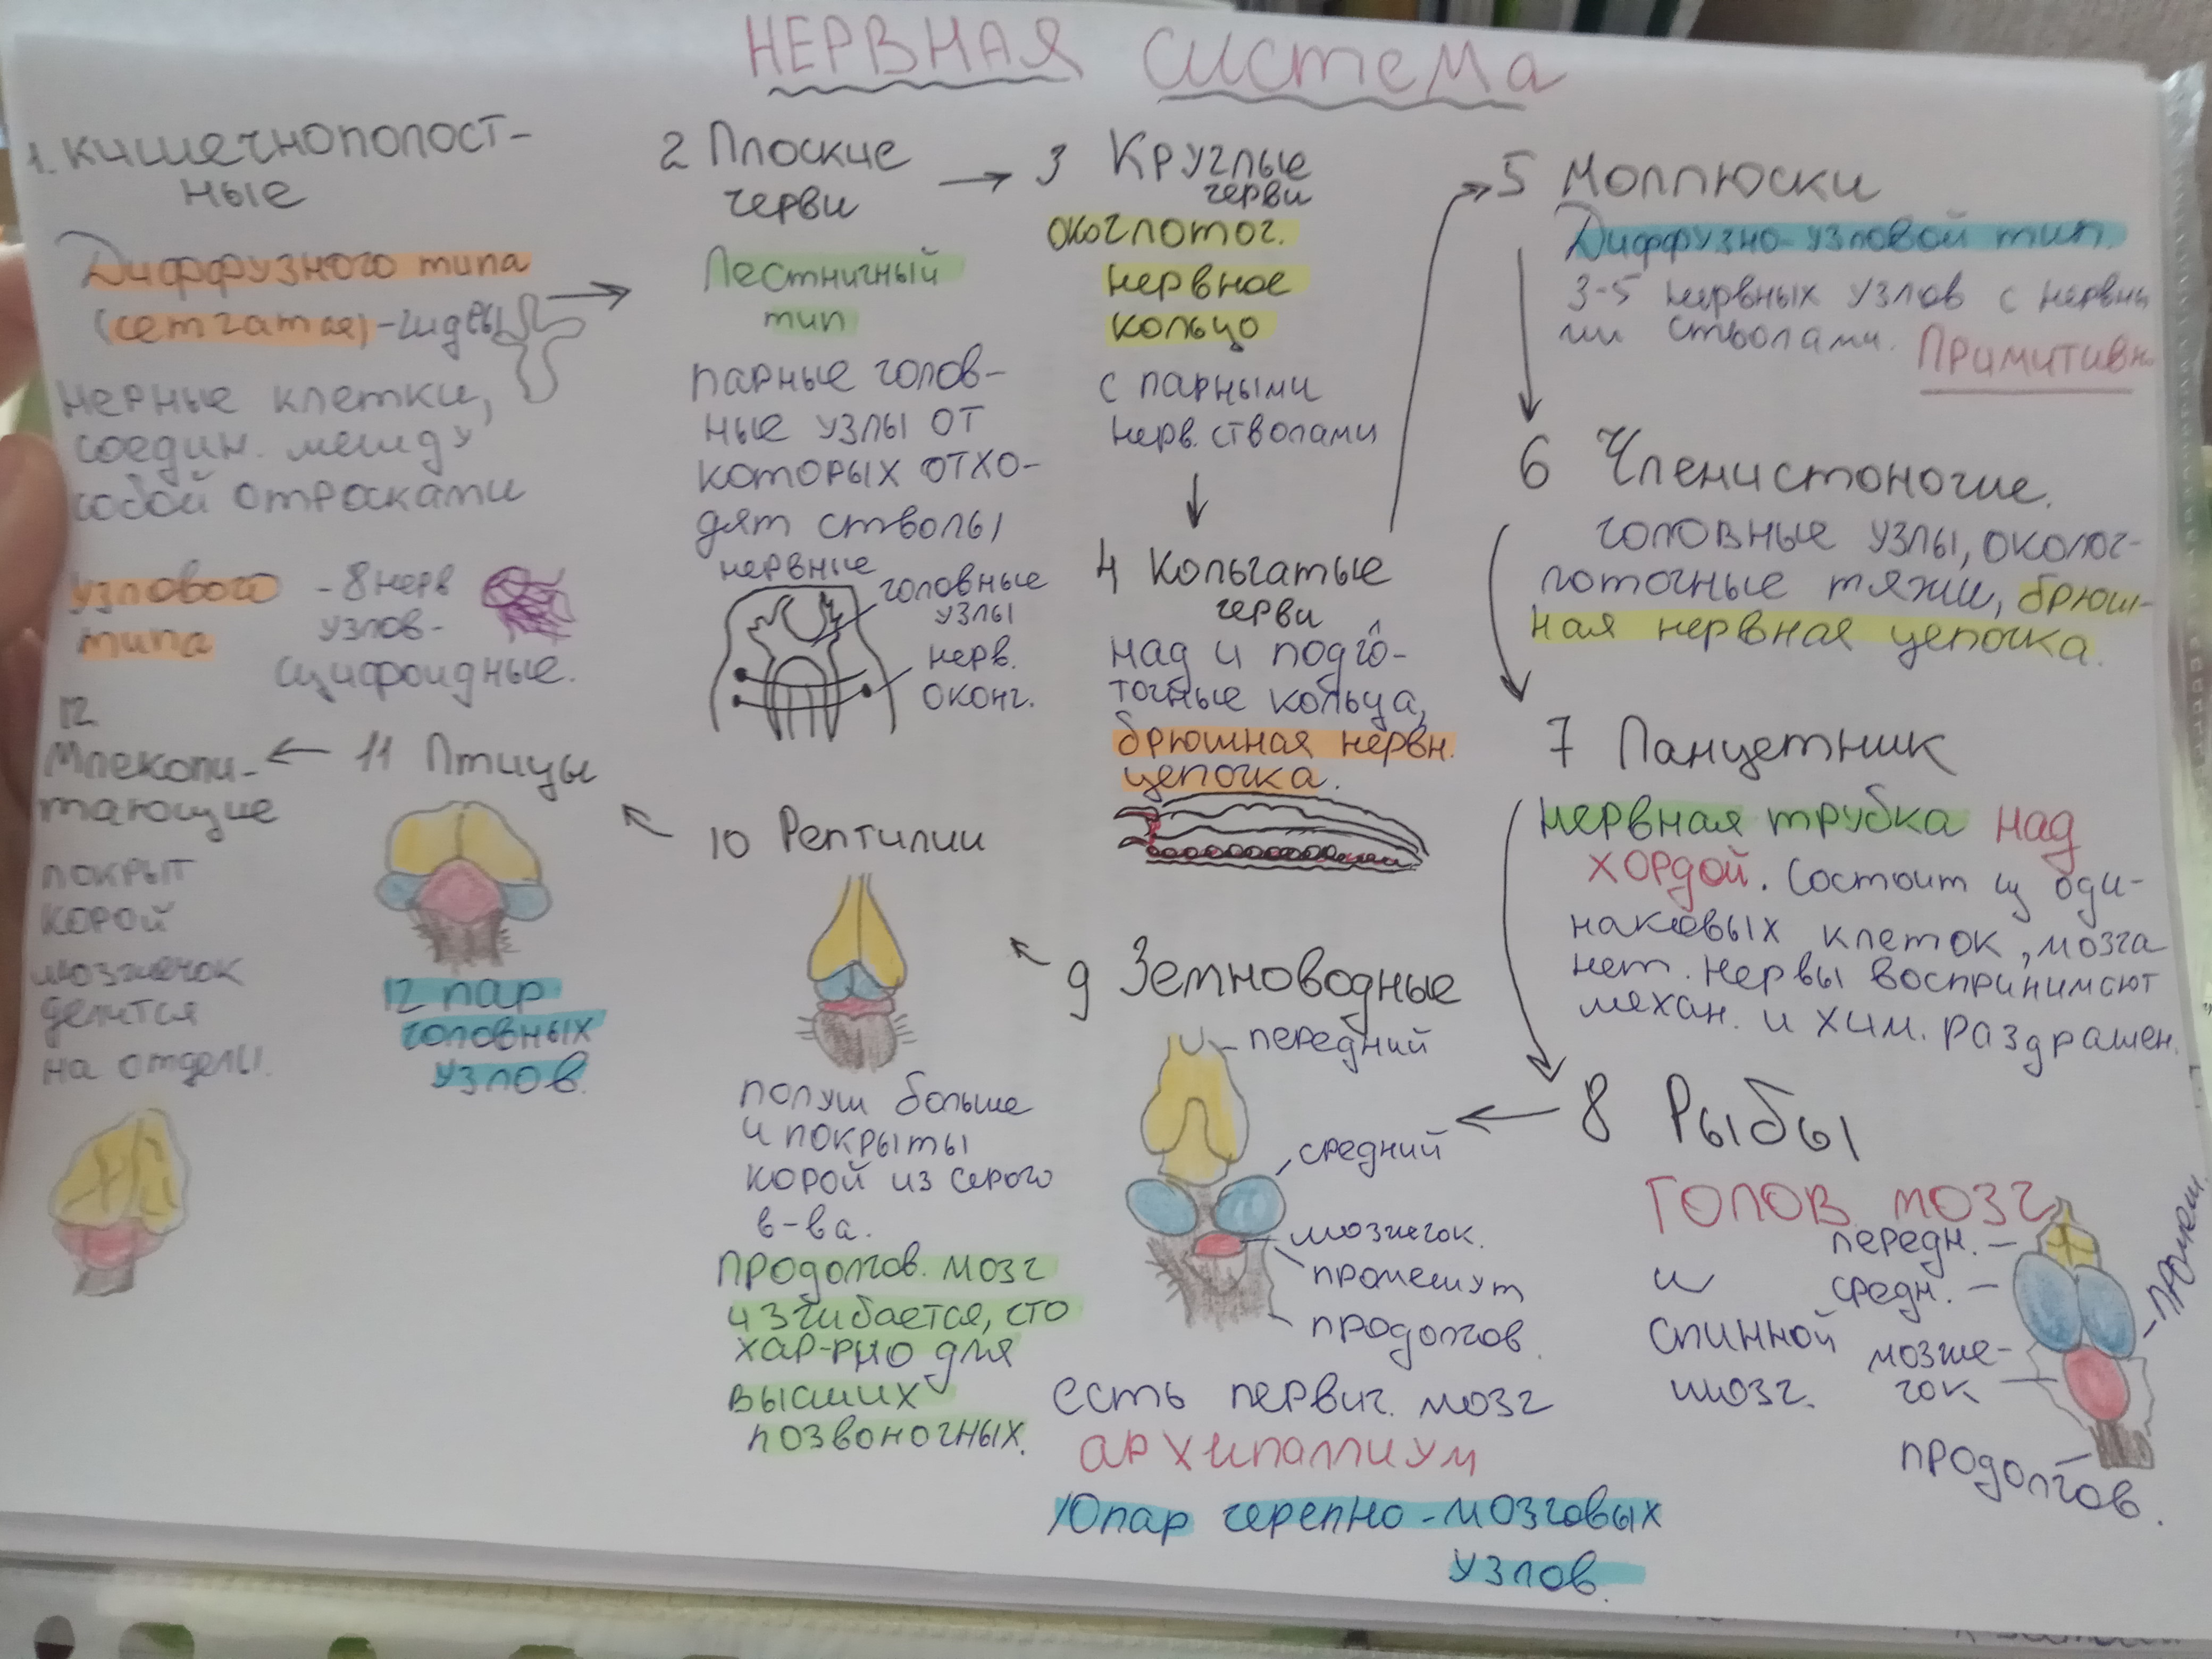 НЕРВНАЯ система
1. Кишечнополост-
ные
Диффузного типа
(сетчатая)-гидры
нервные клетки,
соедин. между
собой отросками
узлового - 8 нерв
типа узлов-
сцифоидные.
2 Плоские
черви
Лестничный
тип
парные голов-
ные узлы от
которых отхо-
дят стволы
нервные
головные
узлы
нерв.
оконч.
3 Круглые
черви
окоглоточ.
нервное
кольцо
с парными
нерв. стволами
4 Кольчатые
черви
над и подгло-
точные кольца,
брюшная нервн.
цепочка.
5 Моллюски
Диффузно-узловой тип.
3-5 нервных узлов с нервны
ми стволами. Примитивн
6 Членистоногие.
головные узлы, околог-
лоточные тяжи, брюш-
ная нервная цепочка.
7 Ланцетник
нервная трубка над
хордой. Состоит из оди-
наковых клеток, мозга
нет. Нервы воспринимают
механ. и хим. раздражен.
8 Рыбы
голов. мозг
и
спинной
мозг.
передн.
средн.
мозже-
чок
продолгов.
промеж.
9 Земноводные
передний
средний
мозжечок.
промежут
продолгов.
есть первич. мозг
архипаллиум
10 пар черепно-мозговых
узлов.
10 Рептилии
полуш больше
и покрыты
корой из серого
в-ва.
продолгов. мозг
изгибается, сто
хар-рно для
высших
позвоночных.
11 Птицы
12 пар
головных
узлов.
12
Млекопи-
тающие
покрыт
корой
мозжечок
делится
на отделы.